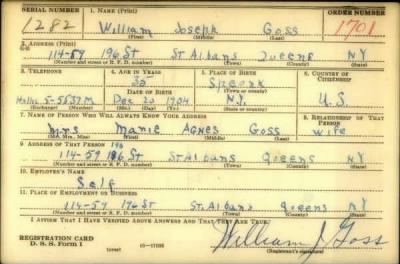 SERIAL NUMBER 1. NAME (Print) ORDER NUMBER
1282 William Joseph Goss 1701
(First) (Middle) (Last)
2. ADDRESS (Print)
114-59 196 St St Albans Queens NY
(Number and street or R. F. D. number) (Town) (County) (State)
3. TELEPHONE 4. AGE IN YEARS 5. PLACE OF BIRTH 6. COUNTRY OF CITIZENSHIP
(Town or county)
DATE OF BIRTH
5-5537M Dec 20 1904 N.Y. U.S.
(Exchange) (Number) (Mo.) (Day) (Yr.) (State or country)
7. NAME OF PERSON WHO WILL ALWAYS KNOW YOUR ADDRESS 8. RELATIONSHIP OF THAT PERSON
Mrs Agnes Goss Wife
(Mr., Mrs., Miss) (First) (Middle) (Last)
9. ADDRESS OF THAT PERSON 196
114-59 St St Albans Queens NY
(Number and street or R. F. D. number) (Town) (County) (State)
10. EMPLOYER'S NAME
Self
11. PLACE OF EMPLOYMENT OR BUSINESS
114-59 196 St St Albans Queens NY
(Number and street or R. F. D. number) (Town) (County) (State)
I AFFIRM THAT I HAVE VERIFIED ABOVE ANSWERS AND THAT THEY ARE TRUE.
REGISTRATION CARD
D. S. S. Form 1 William J Goss
(Registrant's signature)